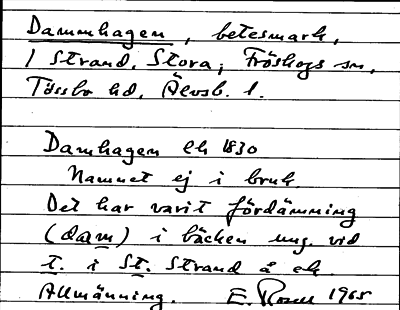 Dammhagen, betesmark,
1 Strand, Stora, Fröskogs sn,
Tössbo hd, Älvsb. l.
Damhagen Ek 1830
Namnet ej i bruk.
Det har varit fördämning
(dam) i bäcken ung. vid
t. i St. Strand å ek
Allmänning. E. Rosell 1965